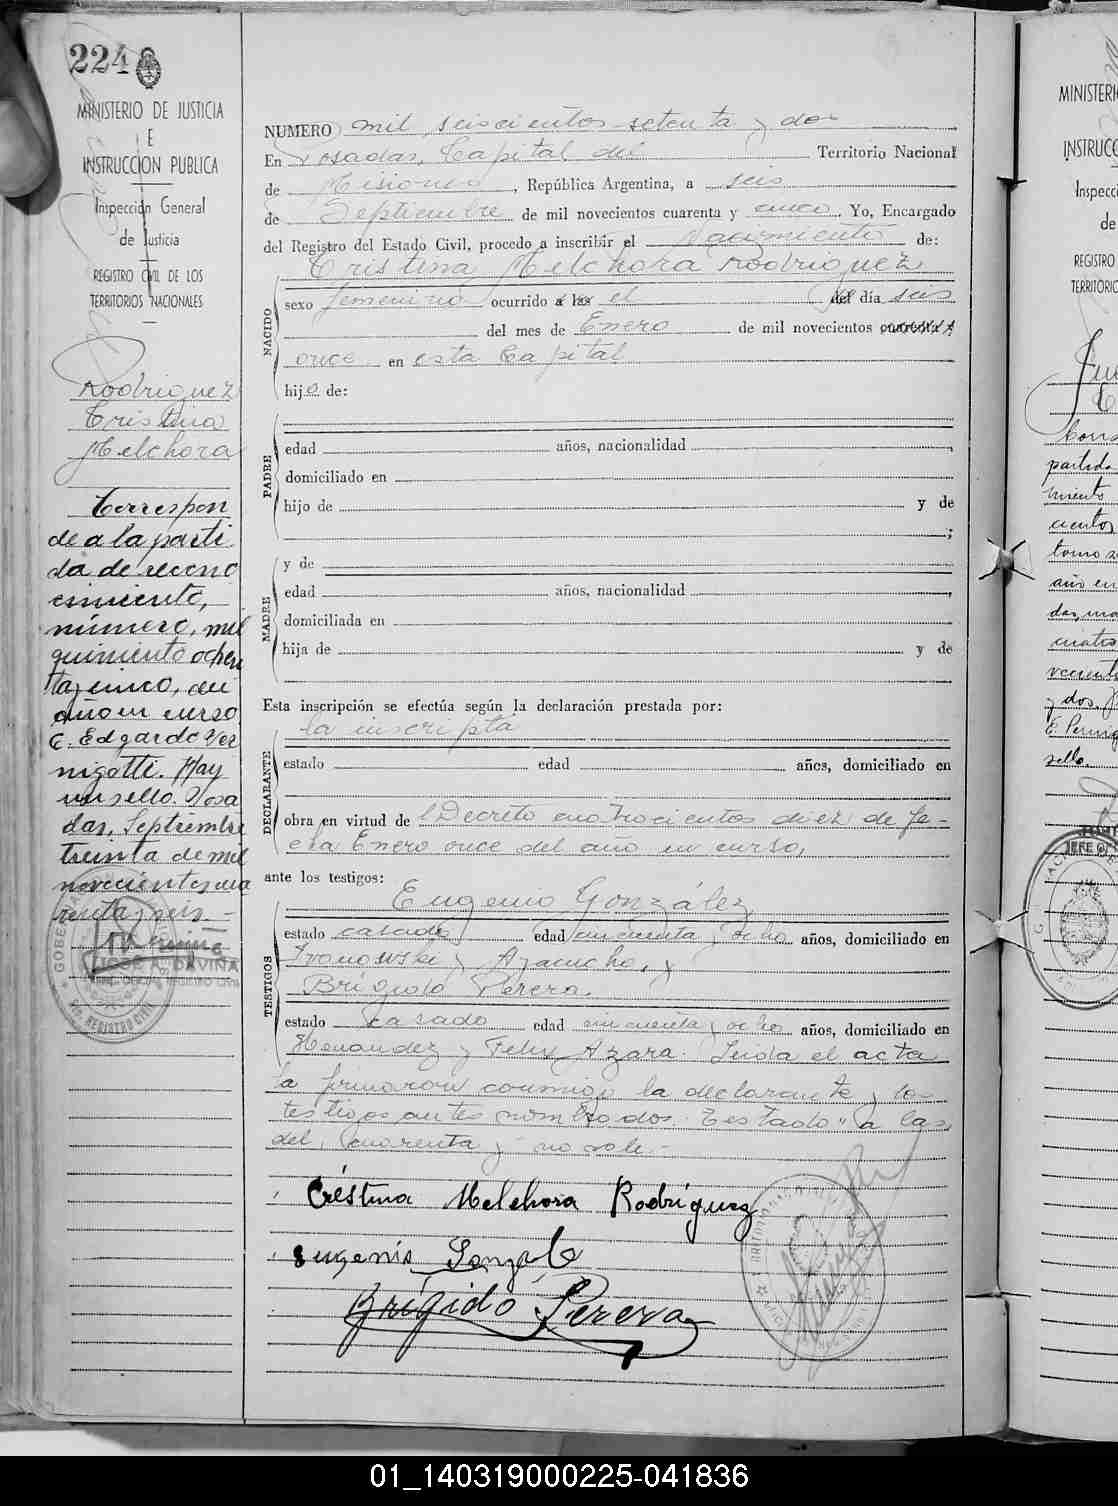 224
MINISTERIO DE JUSTICIA
E
INSTRUCCION PUBLICA
Inspección General
de Justicia
REGISTRO CIVIL DE LOS
TERRITORIOS NACIONALES
Rodriguez
Cristina
Melchora
Correspon
de a la parti
da de recono
cimiento,
número, mil
quiniento ochen
ta y cinco, del
año en curso
E. Edgardo Ver
nigotti. Hay
un sello. Posa
das, Septiembre
treinta de mil
novecientos cua
renta y seis.-
JOSE A. DAVIÑA
NUMERO mil seiscientos setenta y dos
En Posadas, Capital del Territorio Nacional
de Misiones, República Argentina, a seis
de Septiembre de mil novecientos cuarenta y cinco. Yo, Encargado
del Registro del Estado Civil, procedo a inscribir el Nacimiento de:
NACIDO
Cristina Melchora Rodriguez
sexo femenino ocurrido a las el del día seis
del mes de Enero de mil novecientos cuarenta y
once en esta Capital
hija de:
PADRE
edad años, nacionalidad ,
domiciliado en
hijo de y de
;
MADRE
y de
edad años, nacionalidad ,
domiciliada en
hija de y de
Esta inscripción se efectúa según la declaración prestada por:
DECLARANTE
la inscripta
estado edad años, domiciliado en
obra en virtud de l Decreto cuatrocientos diez de fe-
cha Enero once del año en curso,
ante los testigos:
TESTIGOS
Eugenio González
estado casado edad cincuenta y ocho años, domiciliado en
y Ayacucho, y
Brígido Perera.
estado casado edad cincuenta y ocho años, domiciliado en
Henandez y Felix Azara. Leida el acta
la firmaron conmigo la declarante y los
testigos antes nombrados. Testado "a las,
del, cuarenta y no vale.-
Créstina Melchora Rodríguez
Eugenio Gonzale
Brígido Perera
MINISTERI
INSTRUCC
Inspecc
de
REGISTRO
TERRITORIO
partida
miento
cientos
tomo s
año en
cuatro
y dos.
sello.
JEFE O
01_140319000225-041836